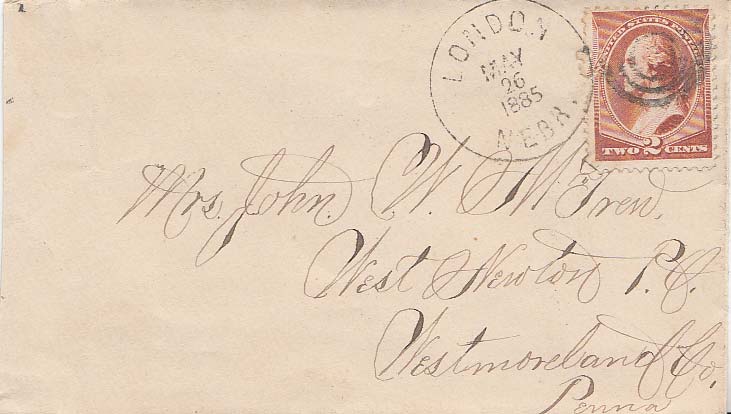 LONDON
MAY
26
1885
NEBR.
UNITED STATES POSTAGE
TWO 2 CENTS
Mrs. John. W.
West Newton P. O.
Westmoreland Co,
Penna